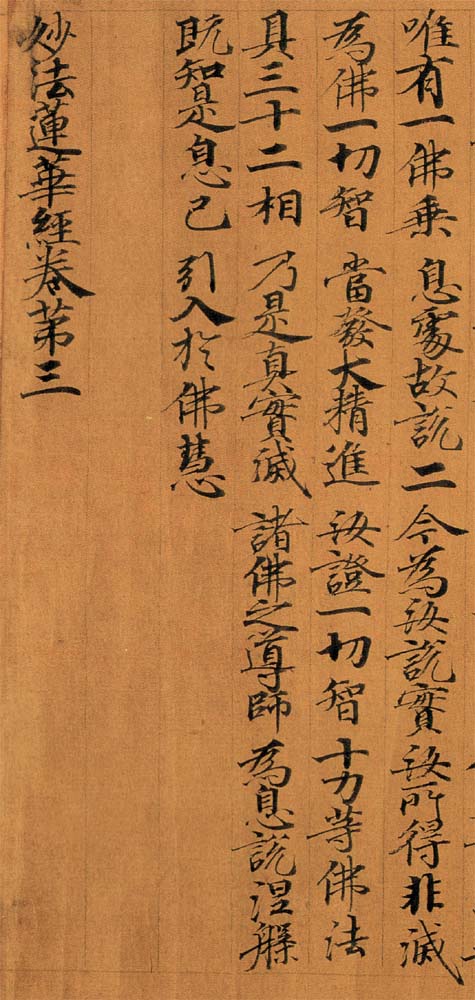 唯有一佛乘 息處故說二 今為汝說實 汝所得非滅
為佛一切智 當發大精進 汝證一切智 十力等佛法
具三十二相 乃是真實滅 諸佛之導師 為息說涅槃
既知是息已 引入於佛慧
妙法蓮華經卷第三